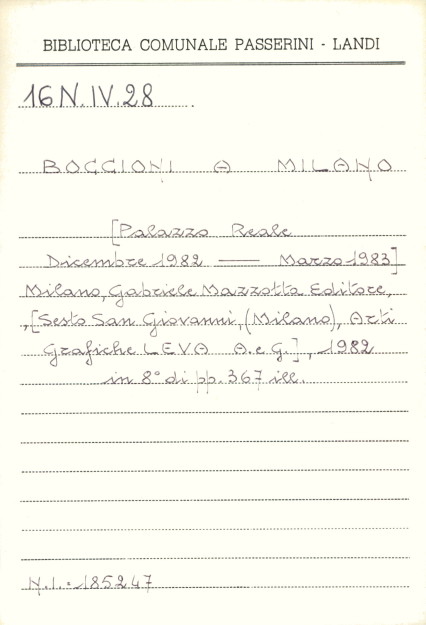 BIBLIOTECA COMUNALE PASSERINI - LANDI
16 N. IV. 28
BOCCIONI A MILANO
[Palazzo Reale
Dicembre 1982 — Marzo 1983]
Milano, Gabriele Mazzotta Editore,
,[Sesto San Giovanni, (Milano), Arti
Grafiche LEVA A. e G.], 1982
in 8° di pp. 367 ill.
N.I.: 185247